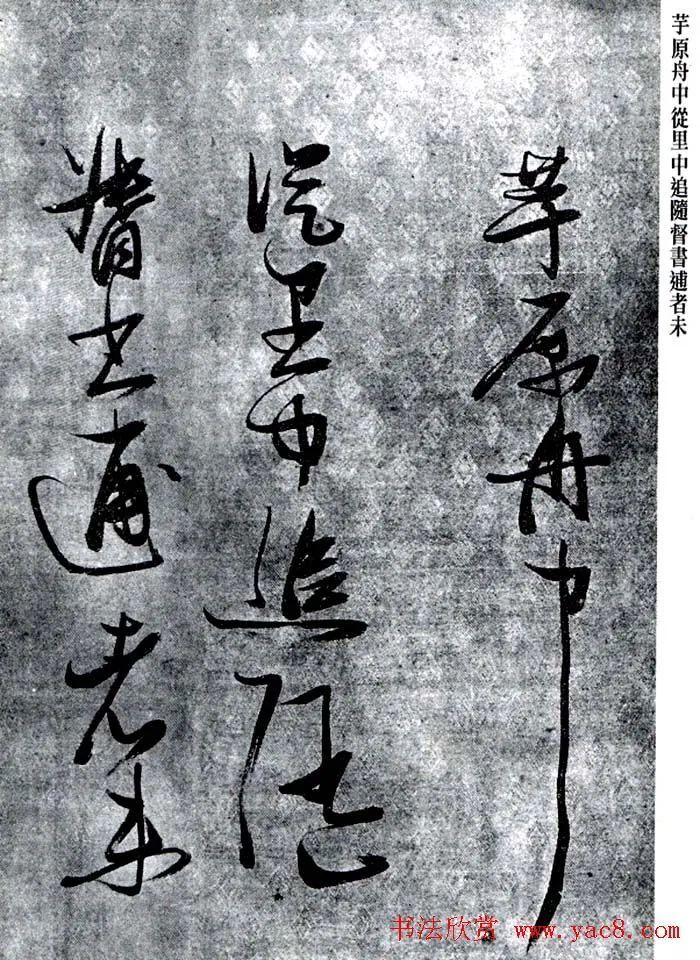 芋原舟中從里中追隨督書逋者未
芋原舟中
從里中追隨
督書逋者未
书法欣赏 www.yac8.com